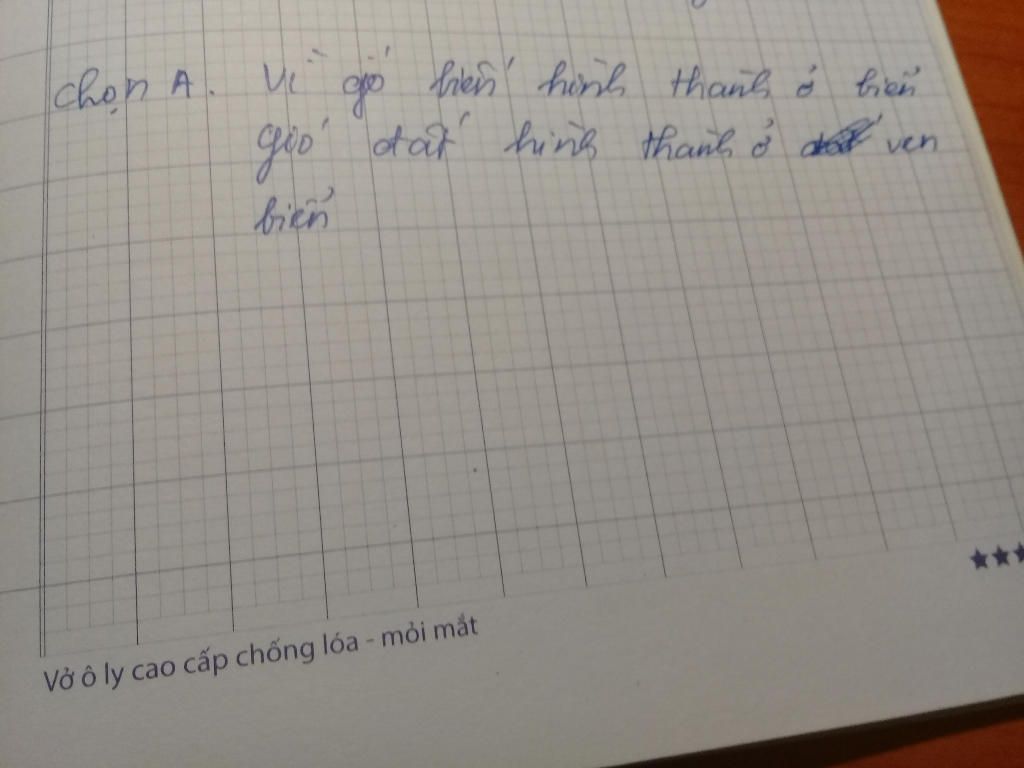 Chọn A. Vì gió biển hình thành ở biển
gió đất hình thành ở ven
biển
Vở ô ly cao cấp chống lóa - mỏi mắt